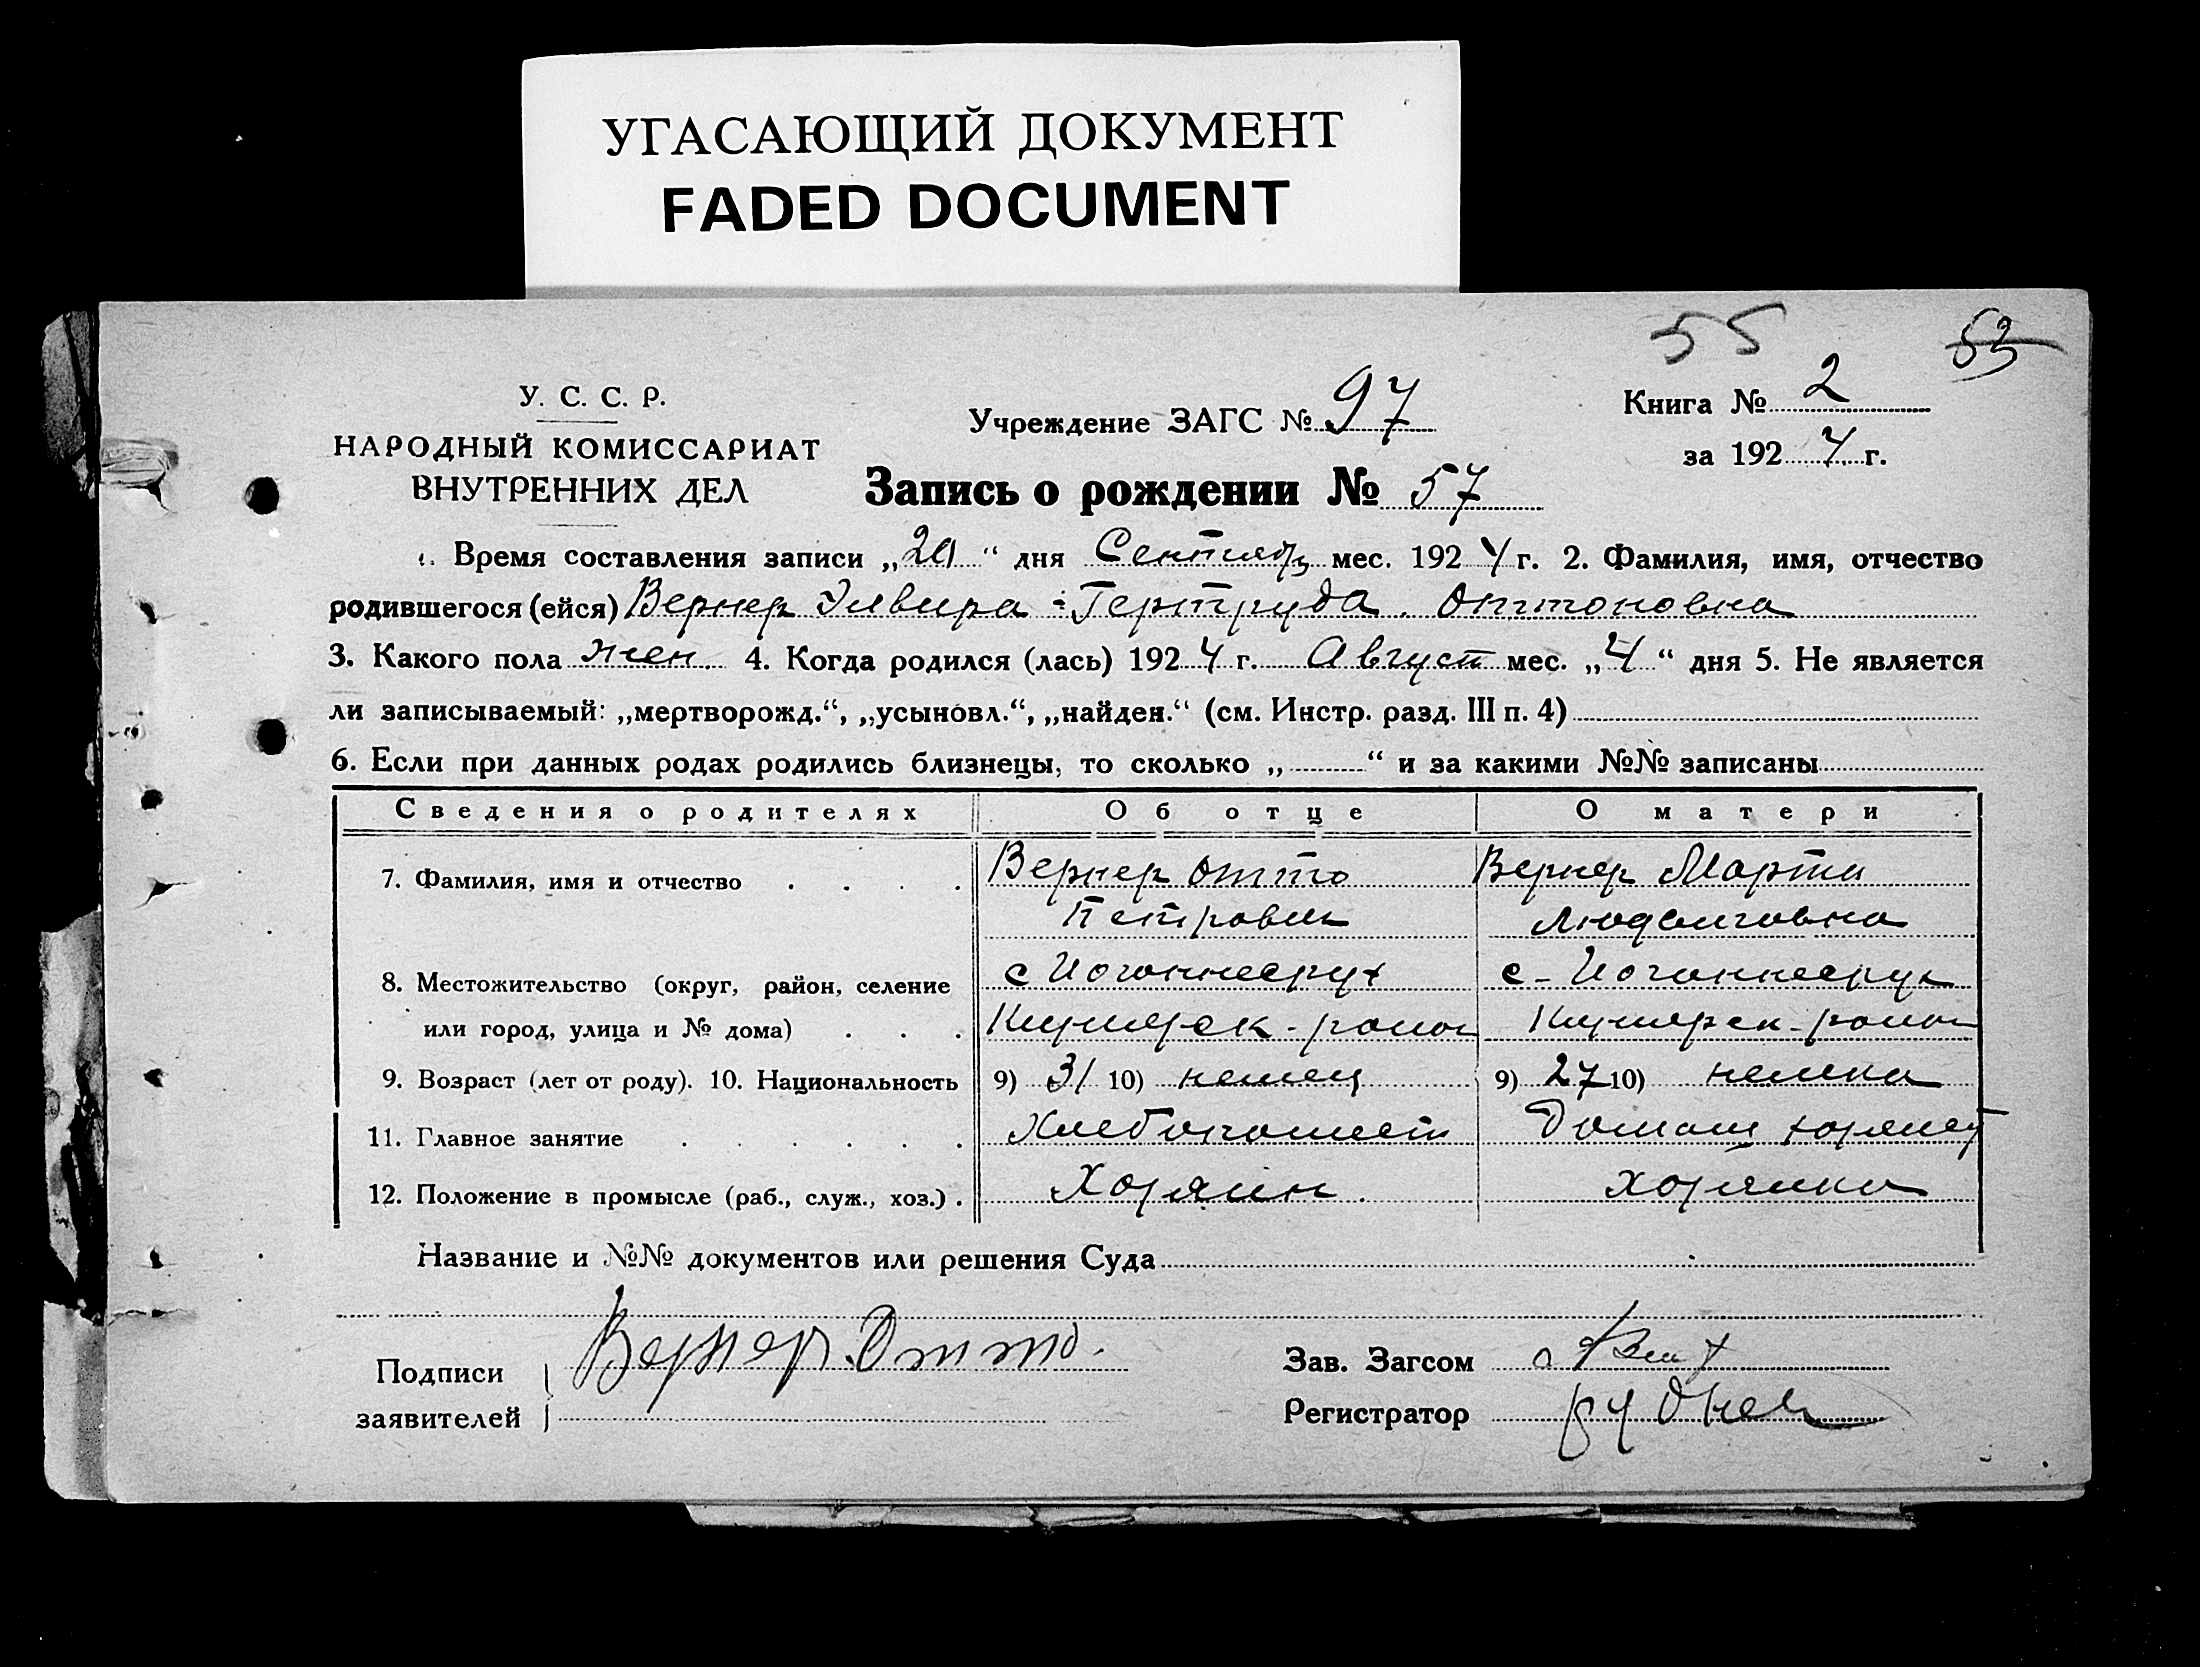 УГАСАЮЩИЙ ДОКУМЕНТ
FADED DOCUMENT
55 53
У. С. С. Р.
НАРОДНЫЙ КОМИССАРИАТ
ВНУТРЕННИХ ДЕЛ
Учреждение ЗАГС № 97
Книга № 2
за 1924 г.
Запись о рождении № 57
1. Время составления записи „20“ дня Сентябр мес. 1924 г. 2. Фамилия, имя, отчество
родившегося (ейся) Вернер Элвира - Гертруда Оттоновна
3. Какого пола жен. 4. Когда родился (лась) 1924 г. Август мес. „4“ дня 5. Не является
ли записываемый: „мертворожд.“, „усыновл.“, „найден.“ (см. Инстр. разд. III п. 4)
6. Если при данных родах родились близнецы, то сколько „ “ и за какими №№ записаны
Сведения о родителях Об отце О матери
7. Фамилия, имя и отчество . . . . Вернер Отто Вернер Марта
Петрович Людвиговна
8. Местожительство (округ, район, селение с Иоганнесрут с - Иоганнесру
или город, улица и № дома) . . . район район
9. Возраст (лет от роду). 10. Национальность 9) 31 10) немец 9) 27 10) немка
11. Главное занятие . . . . . . Хлебопашест Домаш хозяйст
12. Положение в промысле (раб., служ., хоз.) . Хозяин. хозяйка
Название и №№ документов или решения Суда
Подписи
заявителей
Вернер Отто.
Зав. Загсом
Регистратор